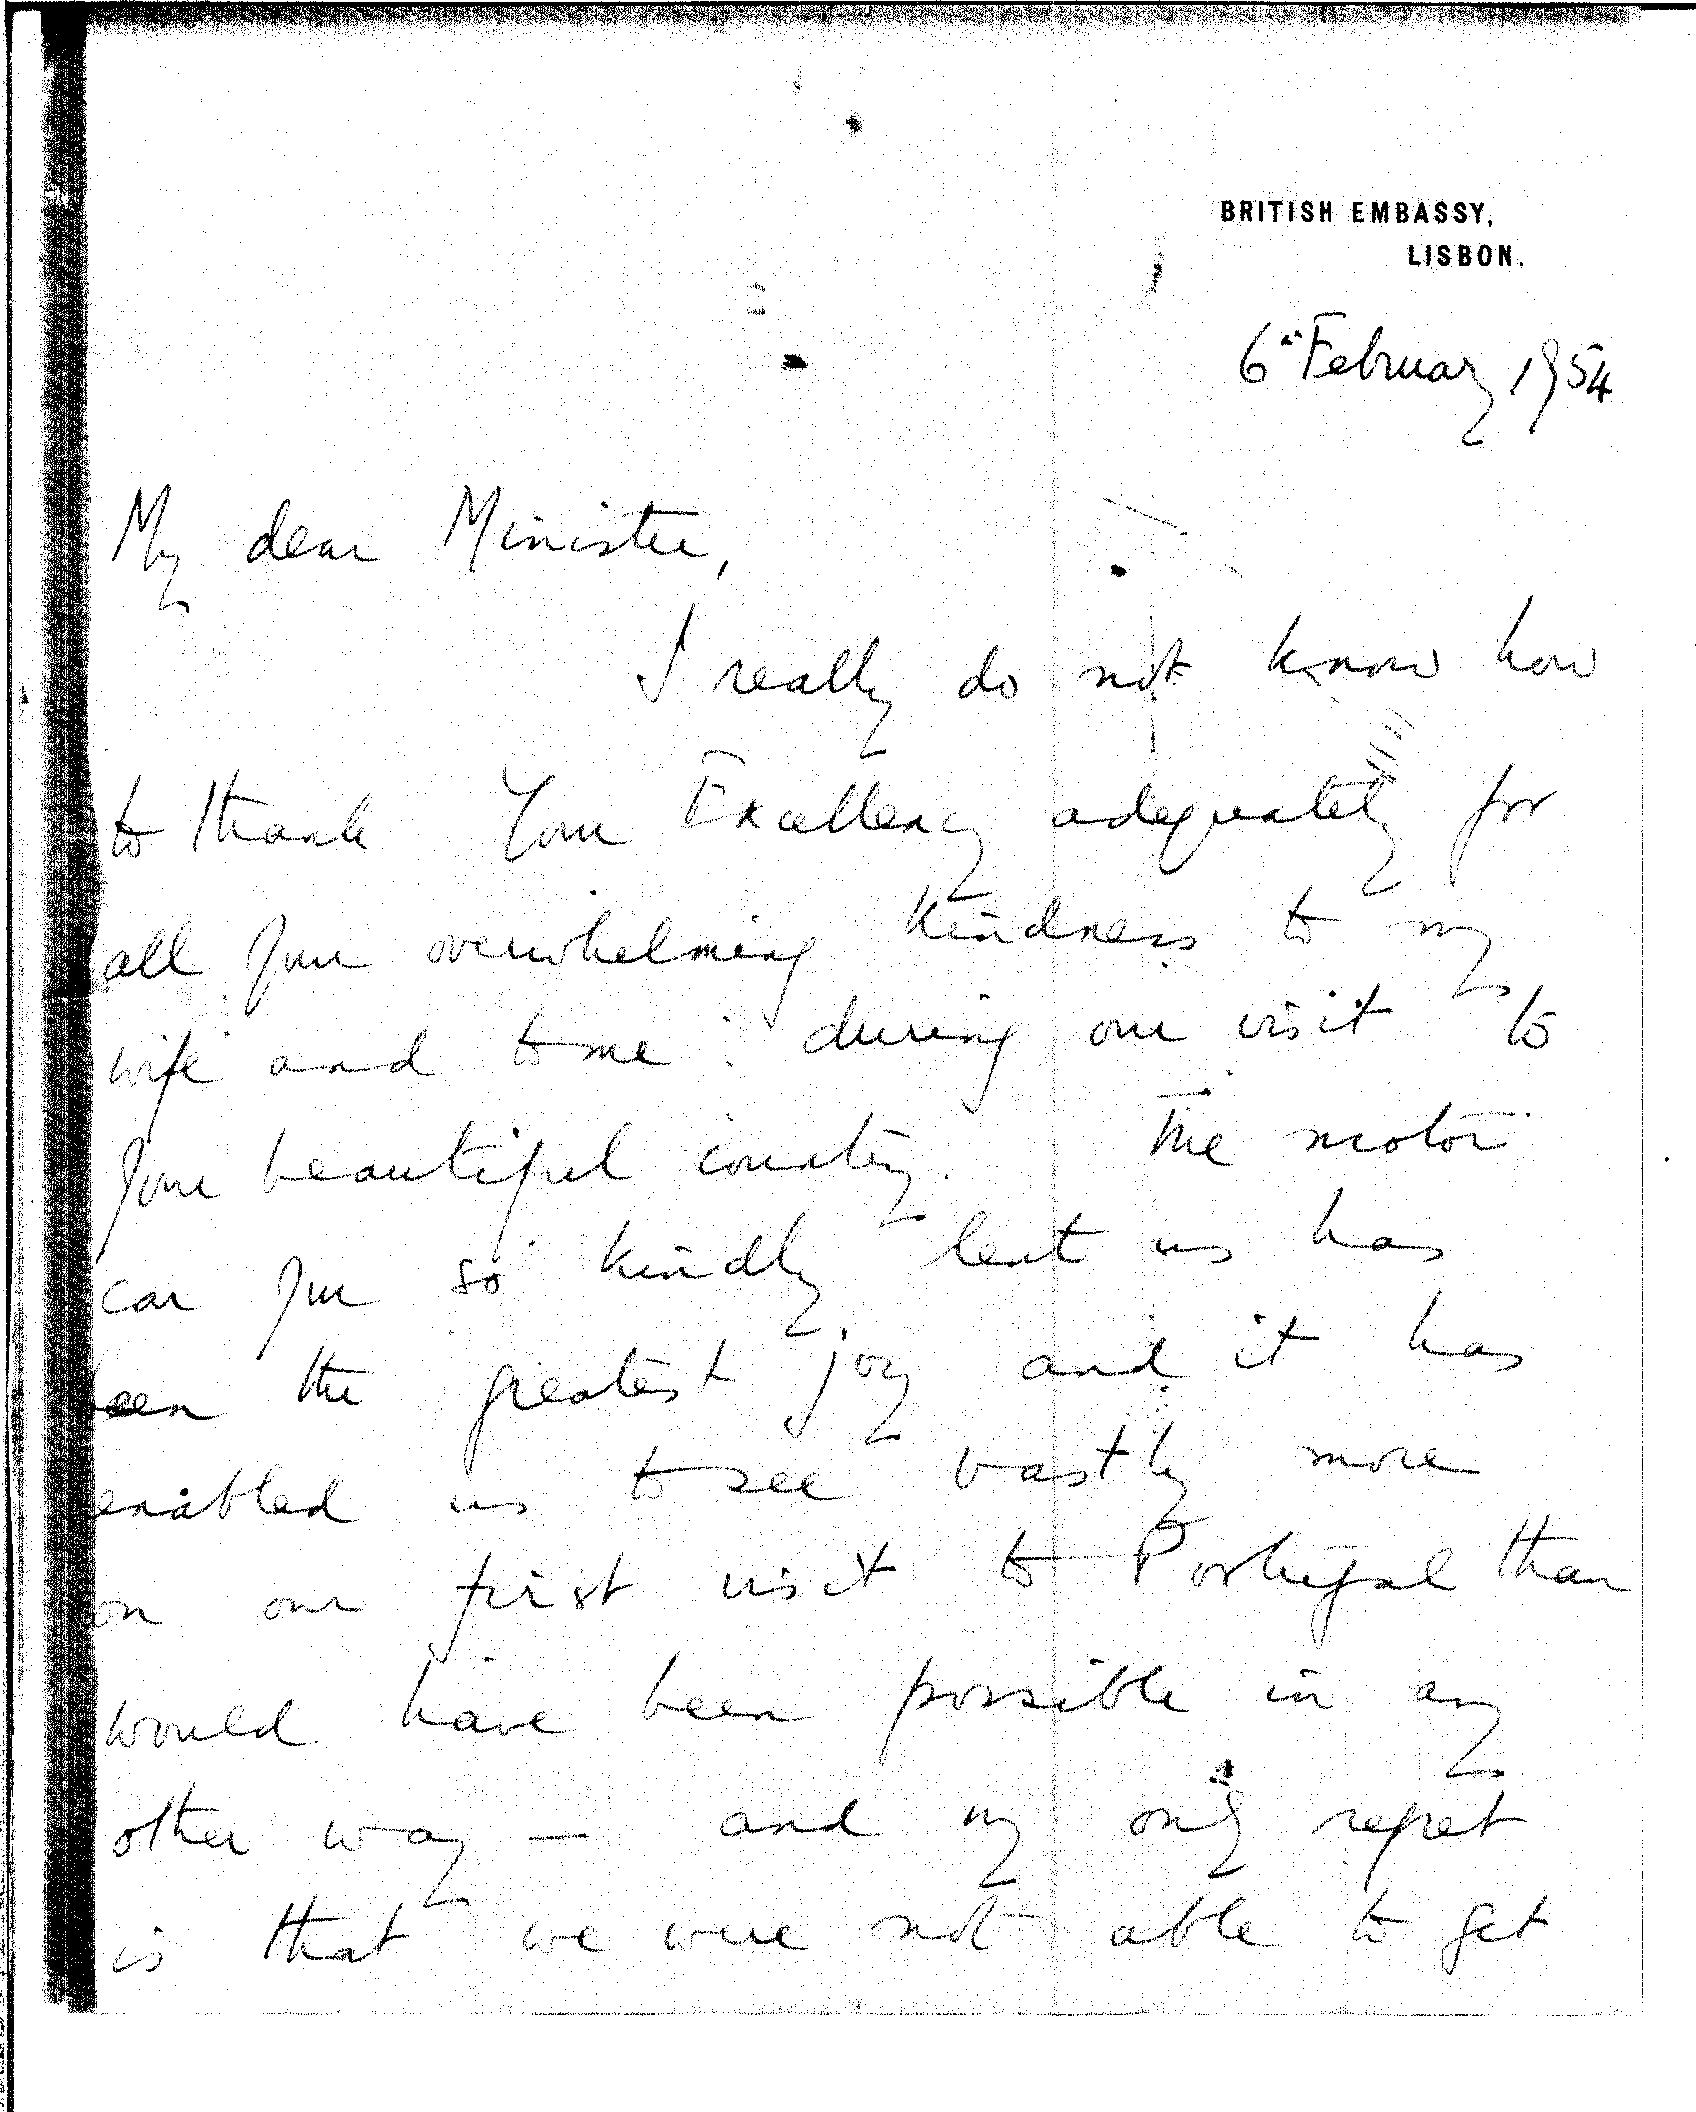 BRITISH EMBASSY,
LISBON.
6th February 1954
My dear Minister,
I really do not know how
to thank Your Excellency adequately for
all your overwhelming kindness to my
wife and to me during our visit to
your beautiful country. The motor
car you so kindly lent us has
been the greatest joy and it has
enabled us to see vastly more
on our first visit to Portugal than
would have been possible in any
other way — and my only regret
is that we were not able to get